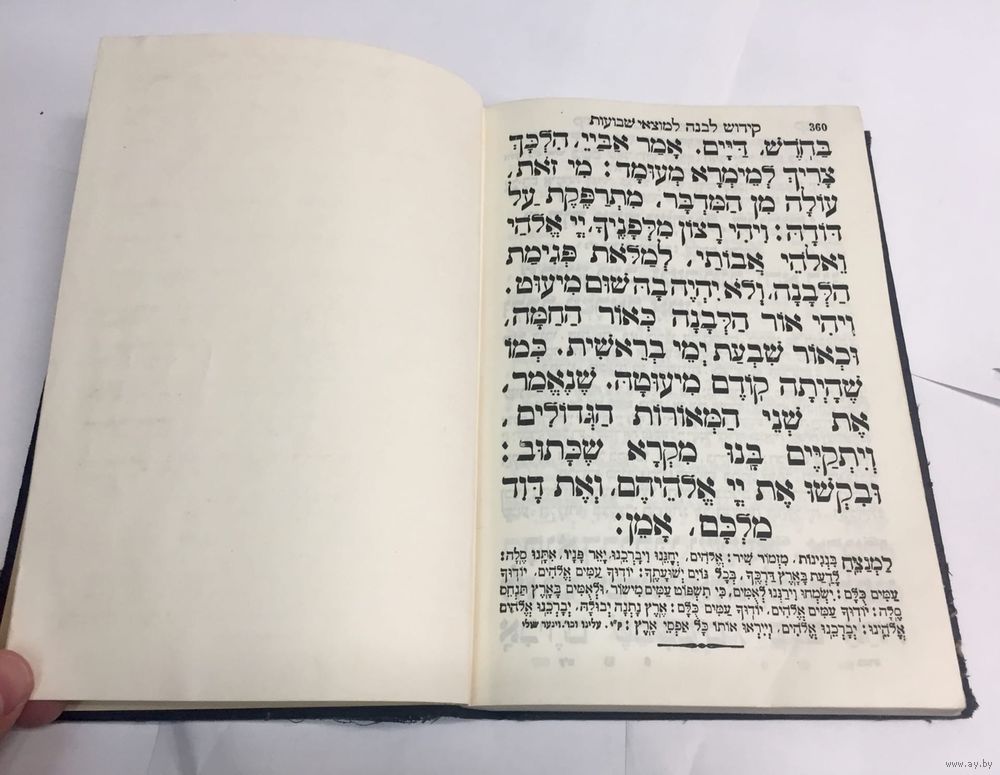 קידוש לבנה למוצאי שבועות 360
בַּחֹדֶשׁ, דַּיָּם. אָמַר אַבַּיֵּי, הִלְכָּךְ
צָרִיךְ לְמֵימְרָא מְעוּמָּד: מִי זֹאת,
עוֹלָה מִן הַמִּדְבָּר, מִתְרַפֶּקֶת עַל
דּוֹדָהּ: וִיהִי רָצוֹן מִלְּפָנֶיךָ, יְיָ אֱלֹהַי
וֵאלֹהֵי אֲבוֹתַי, לְמַלֹּאת פְּגִימַת
הַלְּבָנָה, וְלֹא יִהְיֶה בָּהּ שׁוּם מִיעוּט.
וִיהִי אוֹר הַלְּבָנָה כְּאוֹר הַחַמָּה,
וּכְאוֹר שִׁבְעַת יְמֵי בְרֵאשִׁית. כְּמוֹ
שֶׁהָיְתָה קוֹדֶם מִיעוּטָהּ. שֶׁנֶּאֱמַר,
אֶת שְׁנֵי הַמְּאוֹרוֹת הַגְּדוֹלִים,
וְיִתְקַיֵּים בָּנוּ מִקְרָא שֶׁכָּתוּב:
וּבִקְשׁוּ אֶת יְיָ אֱלֹהֵיהֶם, וְאֵת דָּוִד
מַלְכָּם, אָמֵן:
לַמְנַצֵּחַ בִּנְגִינוֹת, מִזְמוֹר שִׁיר: אֱלֹהִים, יְחָנֵּנוּ וִיבָרְכֵנוּ, יָאֵר פָּנָיו, אִתָּנוּ סֶלָה:
לָדַעַת בָּאָרֶץ דַּרְכֶּךָ, בְּכָל גּוֹיִם יְשׁוּעָתֶךָ: יוֹדוּךָ עַמִּים אֱלֹהִים, יוֹדוּךָ
עַמִּים כֻּלָּם: יִשְׂמְחוּ וִירַנְּנוּ לְאֻמִּים, כִּי תִשְׁפּוֹט עַמִּים מִישׁוֹר, וּלְאֻמִּים בָּאָרֶץ תַּנְחֵם
סֶלָה: יוֹדוּךָ עַמִּים אֱלֹהִים, יוֹדוּךָ עַמִּים כֻּלָּם: אֶרֶץ נָתְנָה יְבוּלָהּ, יְבָרְכֵנוּ אֱלֹהִים
אֱלֹהֵינוּ: יְבָרְכֵנוּ אֱלֹהִים, וְיִירְאוּ אוֹתוֹ כָּל אַפְסֵי אָרֶץ: ק״י. עלינו וכו׳.
www.ay.by